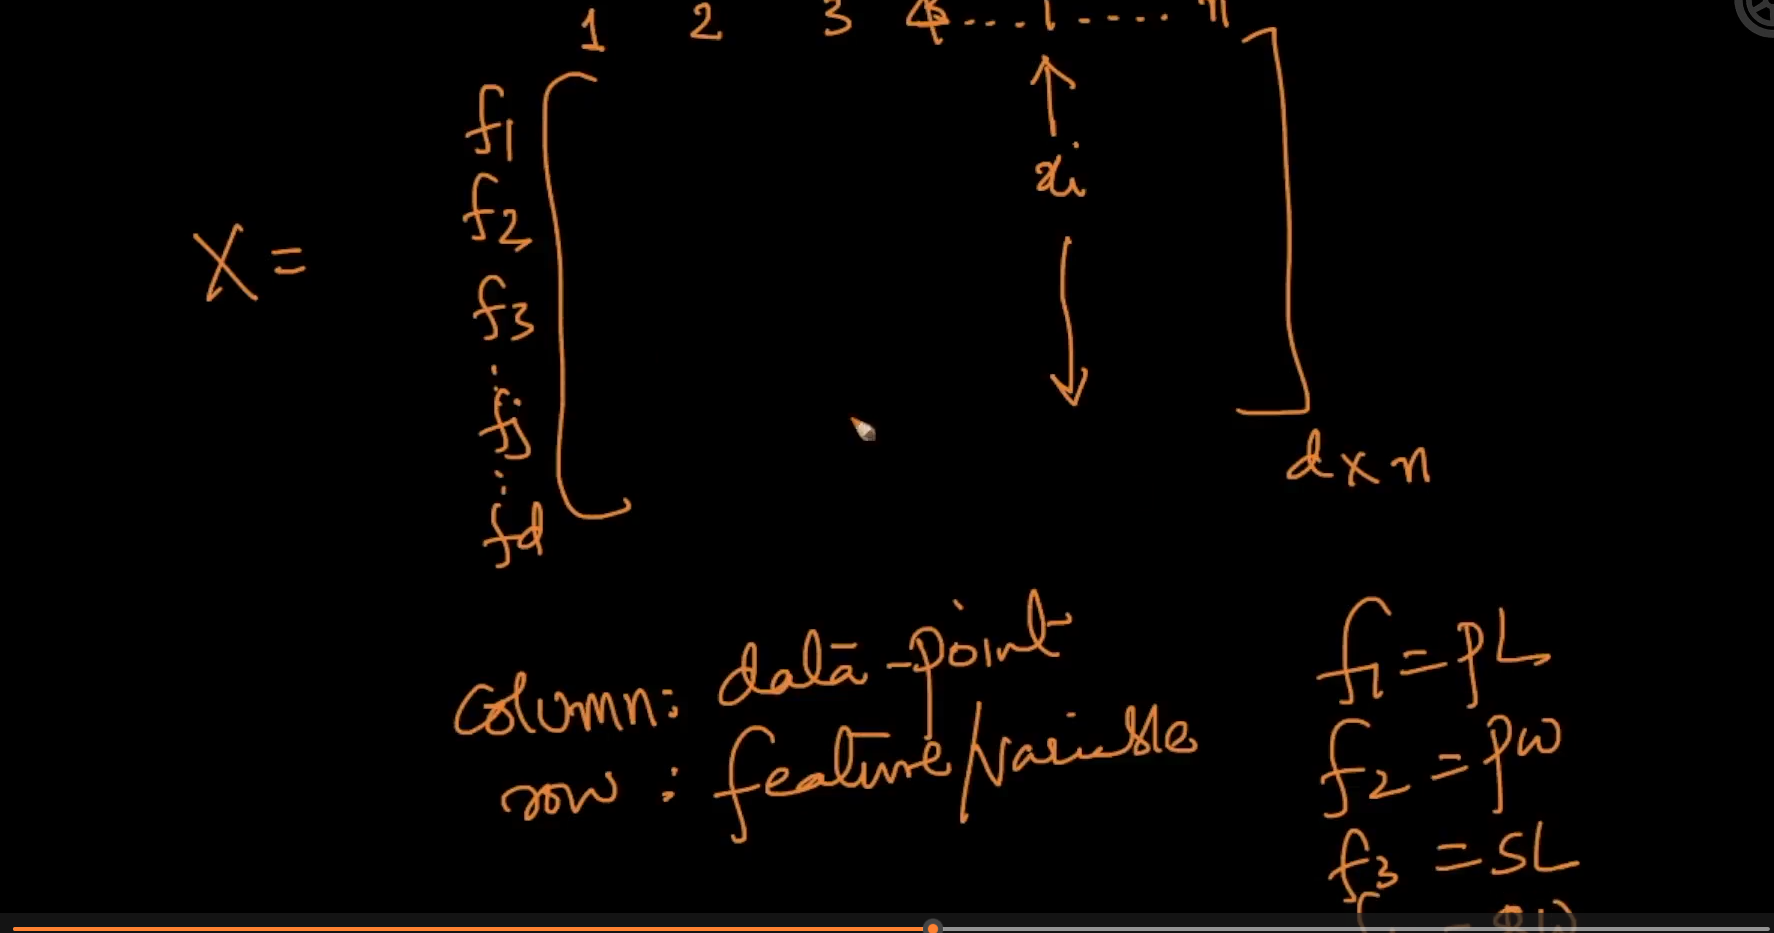 1 2 3 4 ... i .... n
f1
f2
xi
X =
f3
...
fj
...
fd
d x n
column: data-point
row: feature/variable
f1 = PL
f2 = PW
f3 = SL
= SW